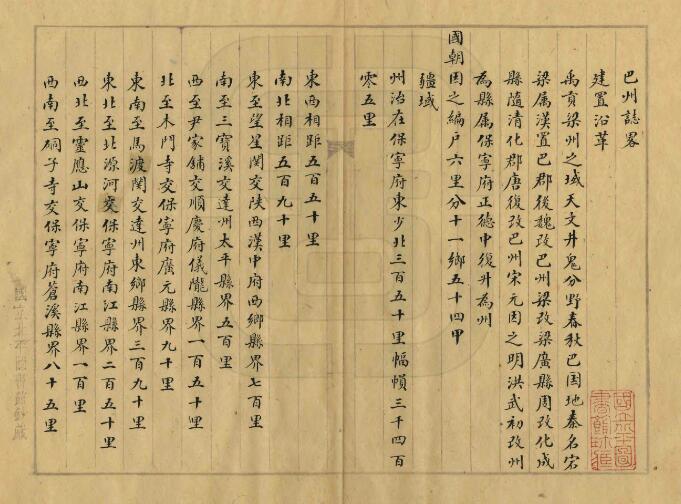 巴州誌畧
建置沿革
禹貢梁州之域天文井鬼分野春秋巴國地秦名宕
梁属漢置巴郡後魏改巴州梁改梁廣縣周改化成
縣隨清化郡唐復改巴州宋元因之明洪武初改州
為縣属保寧府正德中復升為州
國朝因之編户六里分十一鄉五十四甲
疆域
州治在保寧府東少北三百五十里幅幀三千四百
零五里
東西相距五百五十里
南北相距五百九十里
東至望星関交陝西漢中府西鄉縣界七百里
南至三寶溪交達州太平縣界五百里
西至尹家舖交順慶府儀隴縣界一百五十里
北至木門寺交保寧府廣元縣界九十里
東南至馬渡関交達州東鄉縣界三百九十里
東北至北源河交保寧府南江縣界二百五十里
西北至靈應山交保寧府南江縣界一百里
西南至硐子寺交保寧府蒼溪縣界八十五里